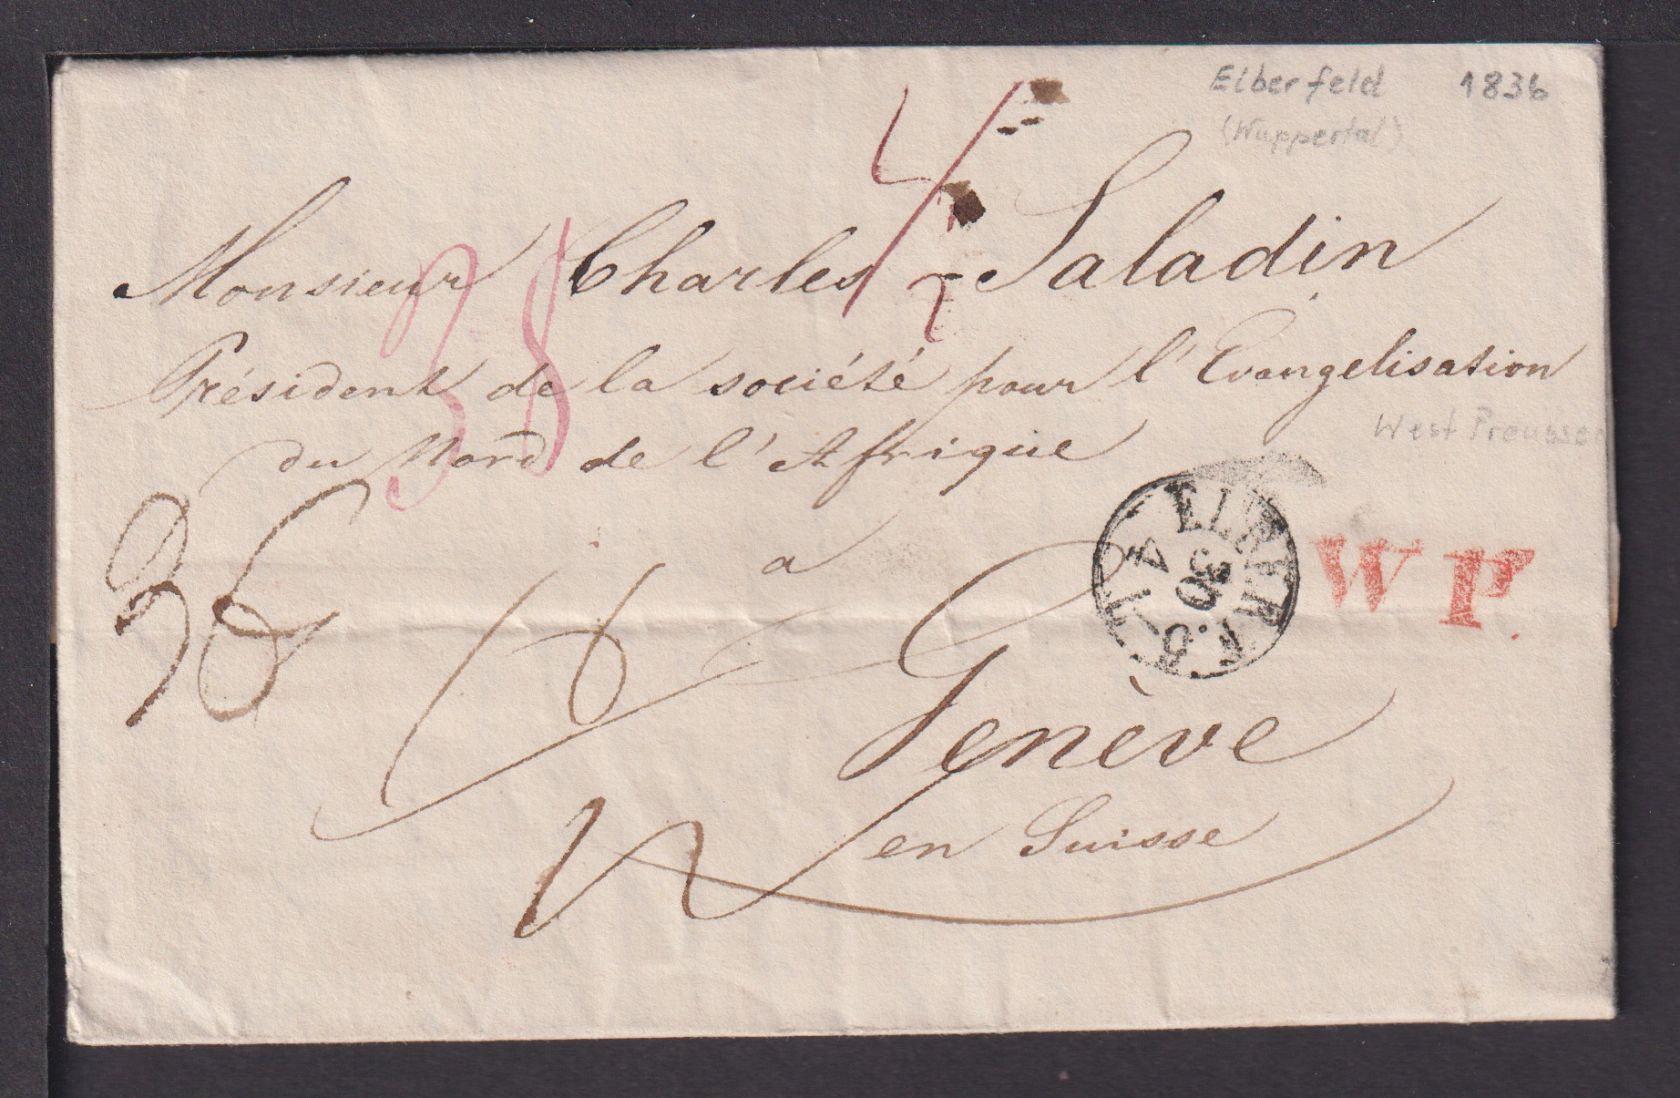 Elberfeld 1836
(Wuppertal)
Monsieur Charles Saladin
Président de la société pour l'Evangelisation
du Nord de l'Afrique
West Preussen
38
36
a
Genève
en Suisse
ELBERF.
30
5
W P.